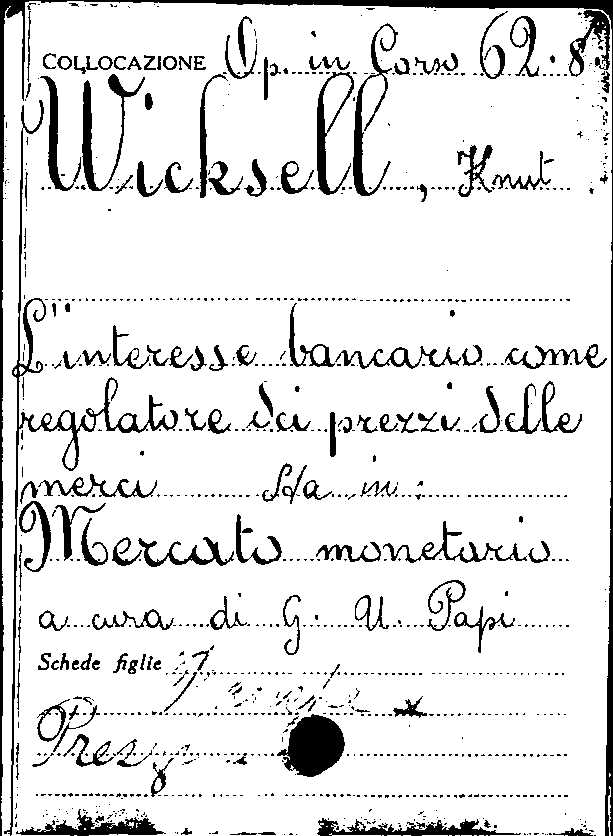 COLLOCAZIONE Op. in Corso 62.8
Wicksell, Knut
L'interesse bancario come
regolatore dei prezzi delle
merci Sta in:
Mercato monetario
a cura di G. U. Papi
Schede figlie